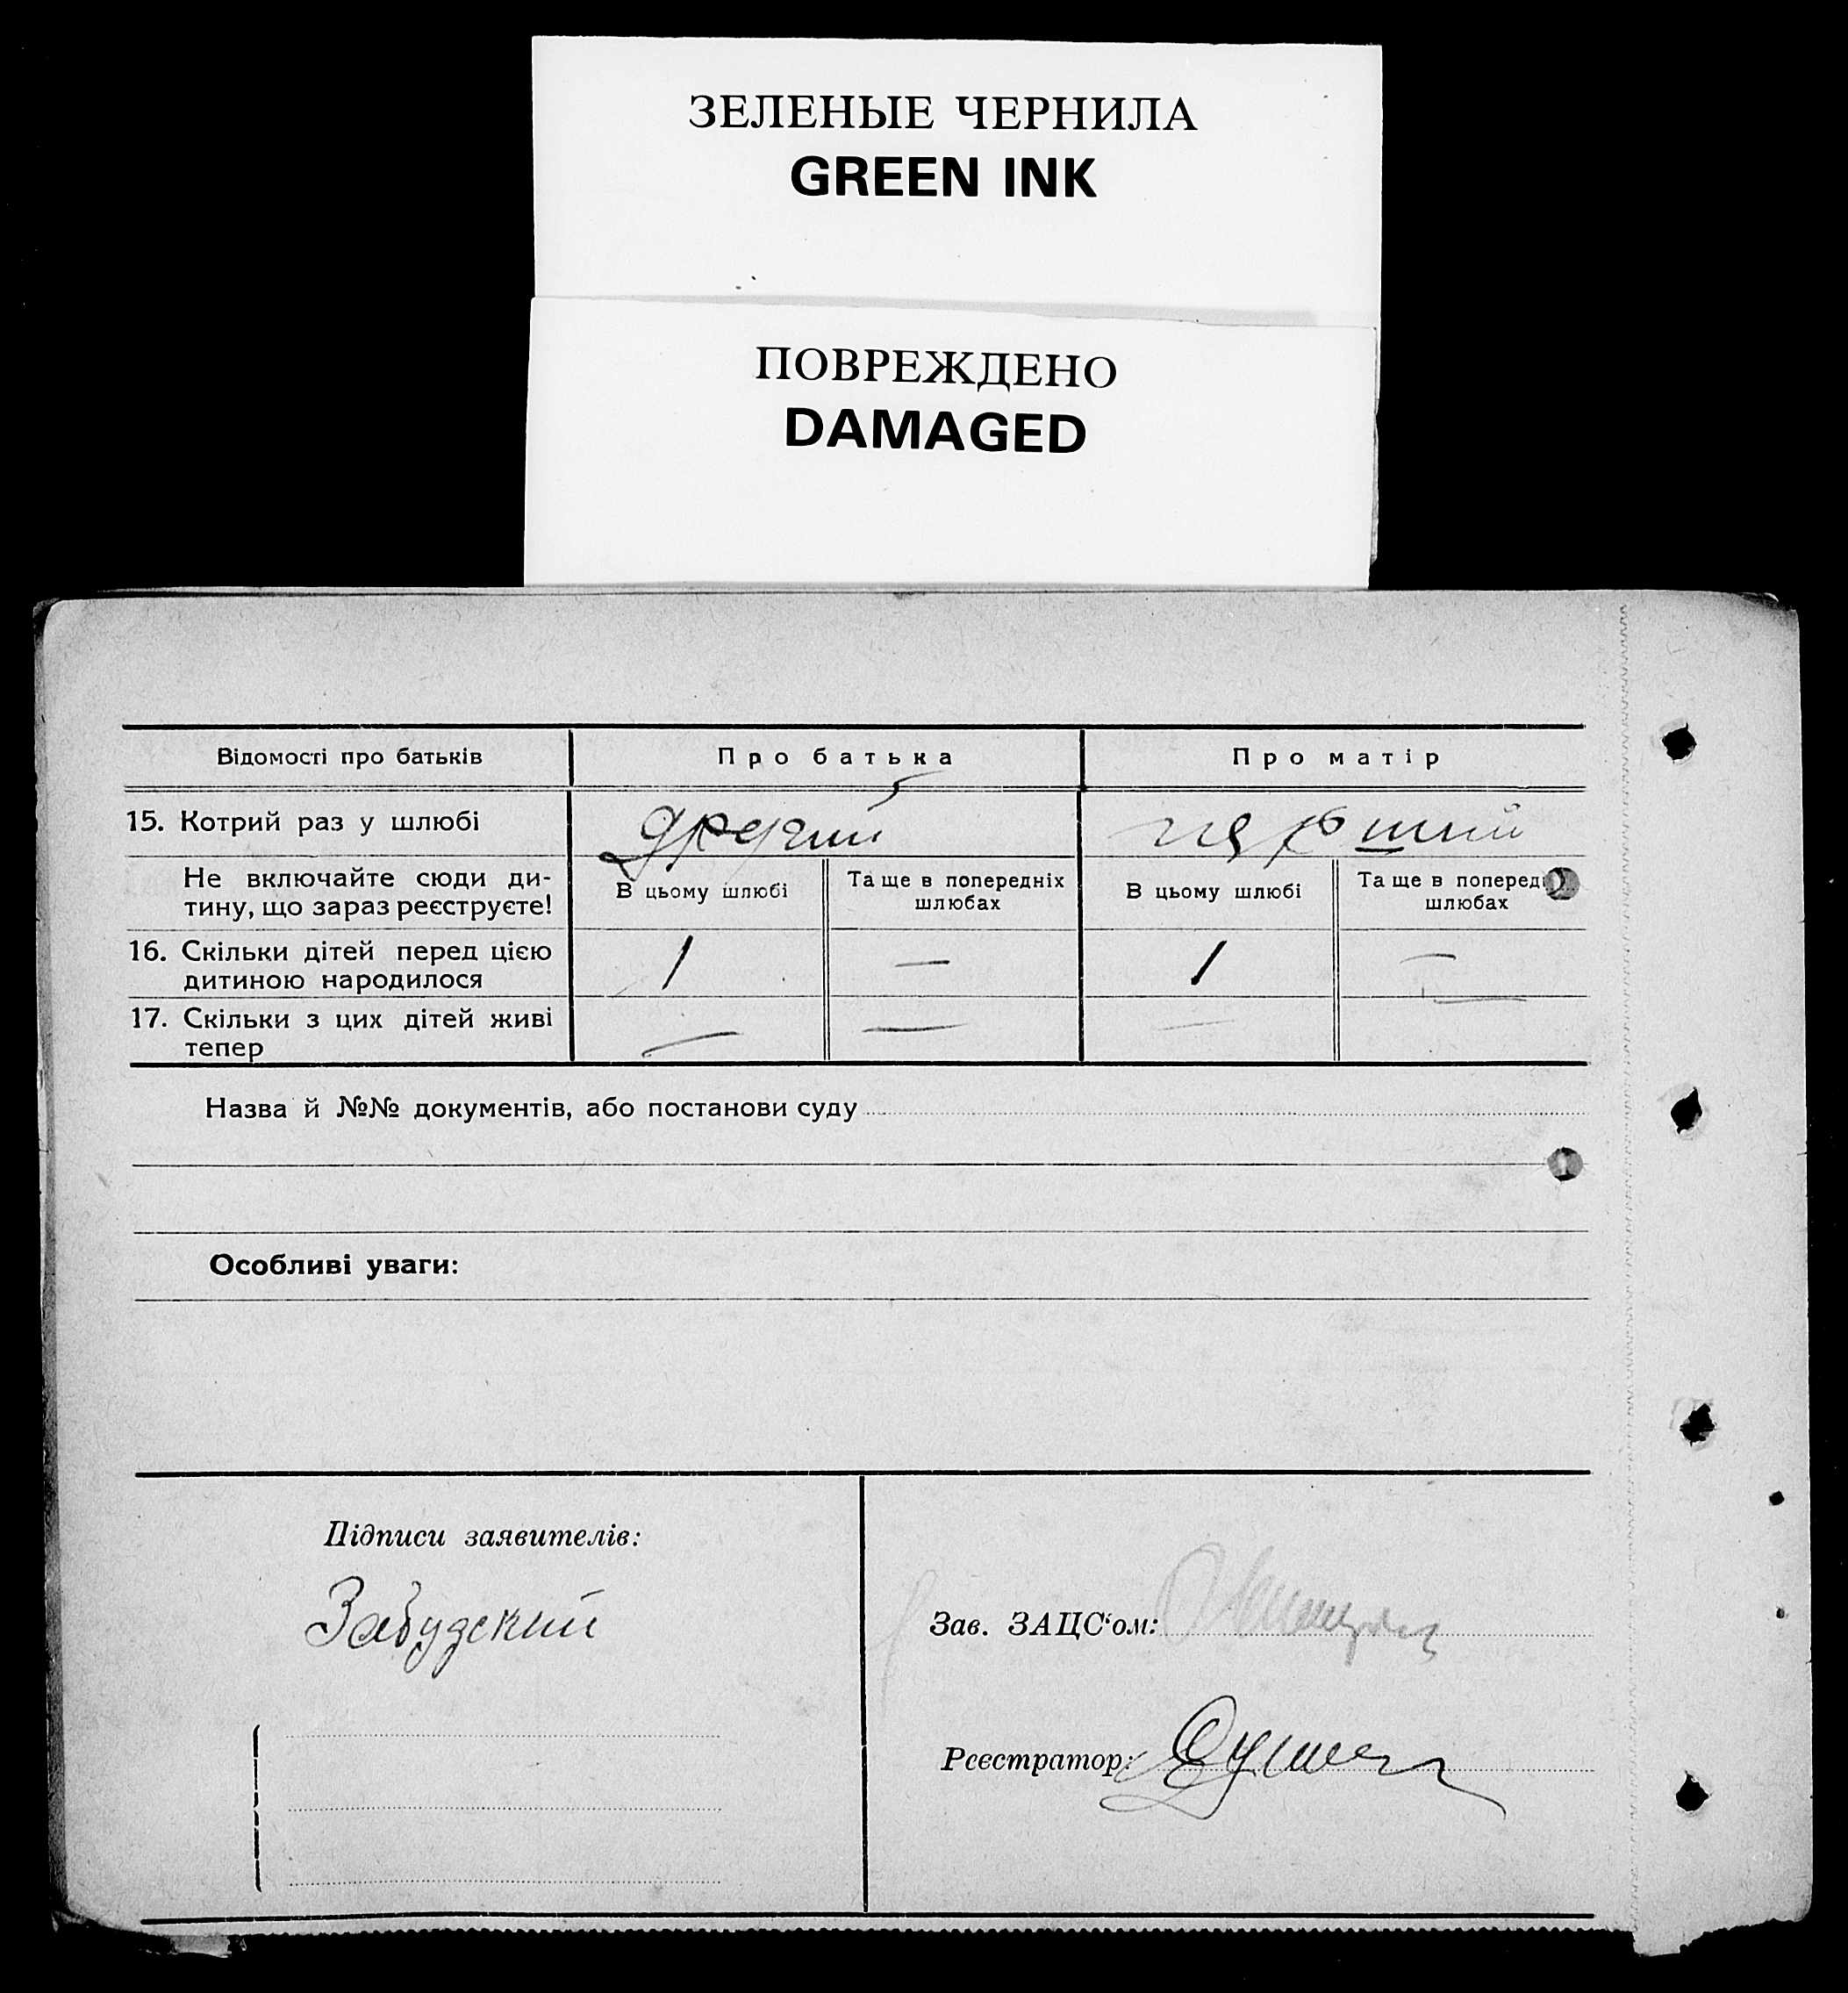 ЗЕЛЕНЫЕ ЧЕРНИЛА
GREEN INK
ПОВРЕЖДЕНО
DAMAGED
Відомості про батьків Про батька Про матір
15. Котрий раз у шлюбі другий перший
Не включайте сюди ди-
тину, що зараз реєструєте!
В цьому шлюбі
Та ще в попередніх
шлюбах
В цьому шлюбі
Та ще в поперед
шлюбах
16. Скільки дітей перед цією
дитиною народилося
1 — 1 —
17. Скільки з цих дітей живі
тепер
— — — —
Назва й №№ документів, або постанови суду
Особливі уваги:
Підписи заявителів:
Забудский
Зав. ЗАЦС‘ом:
Реєстратор: